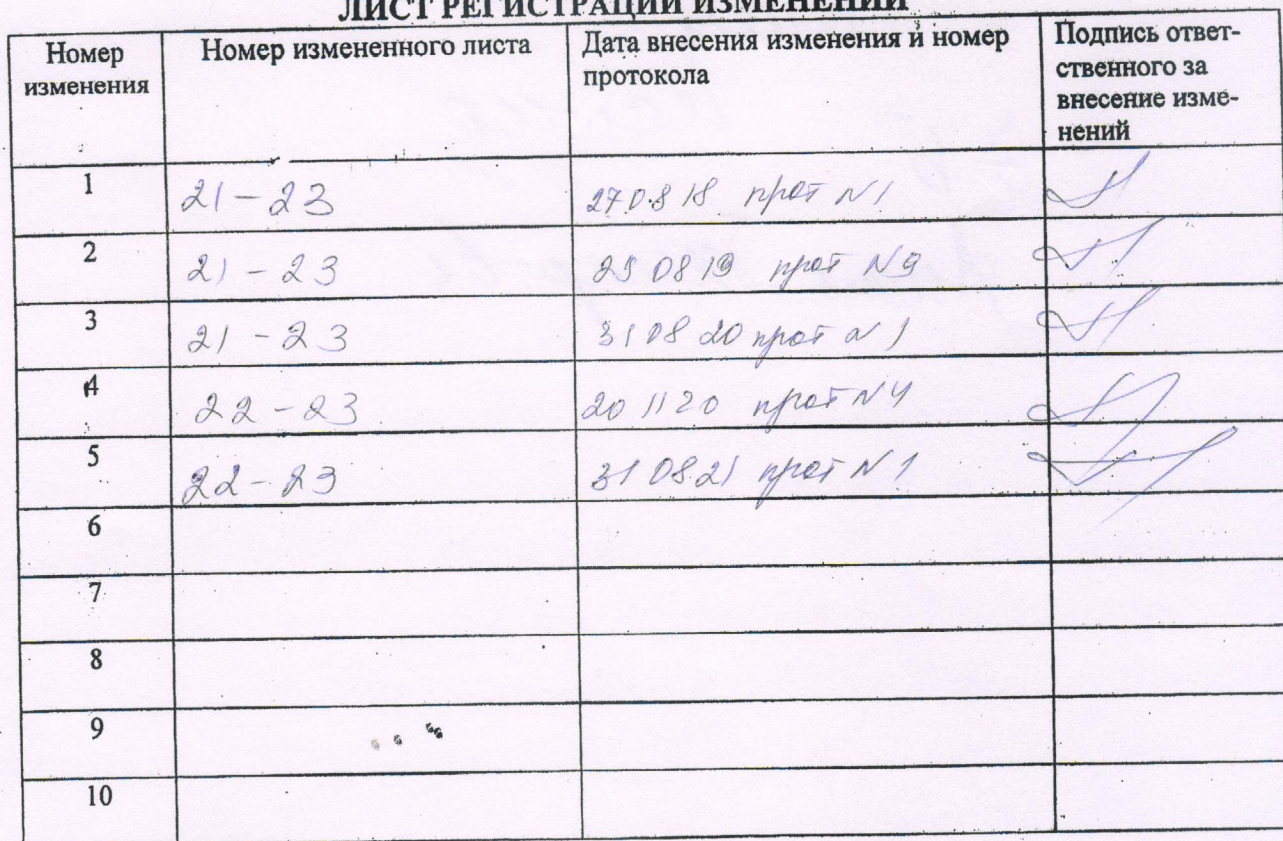 ЛИСТ РЕГИСТРАЦИИ ИЗМЕНЕНИЙ
Номер изменения
Номер измененного листа
Дата внесения изменения и номер протокола
Подпись ответ-
ственного за
внесение изме-
нений
1 21-23 270818 прот N1
2 21-23 290819 прот N9
3 21-23 310820 прот N1
4 22-23 201120 прот N4
5 22-23 310821 прот N1
6
7
8
9
10